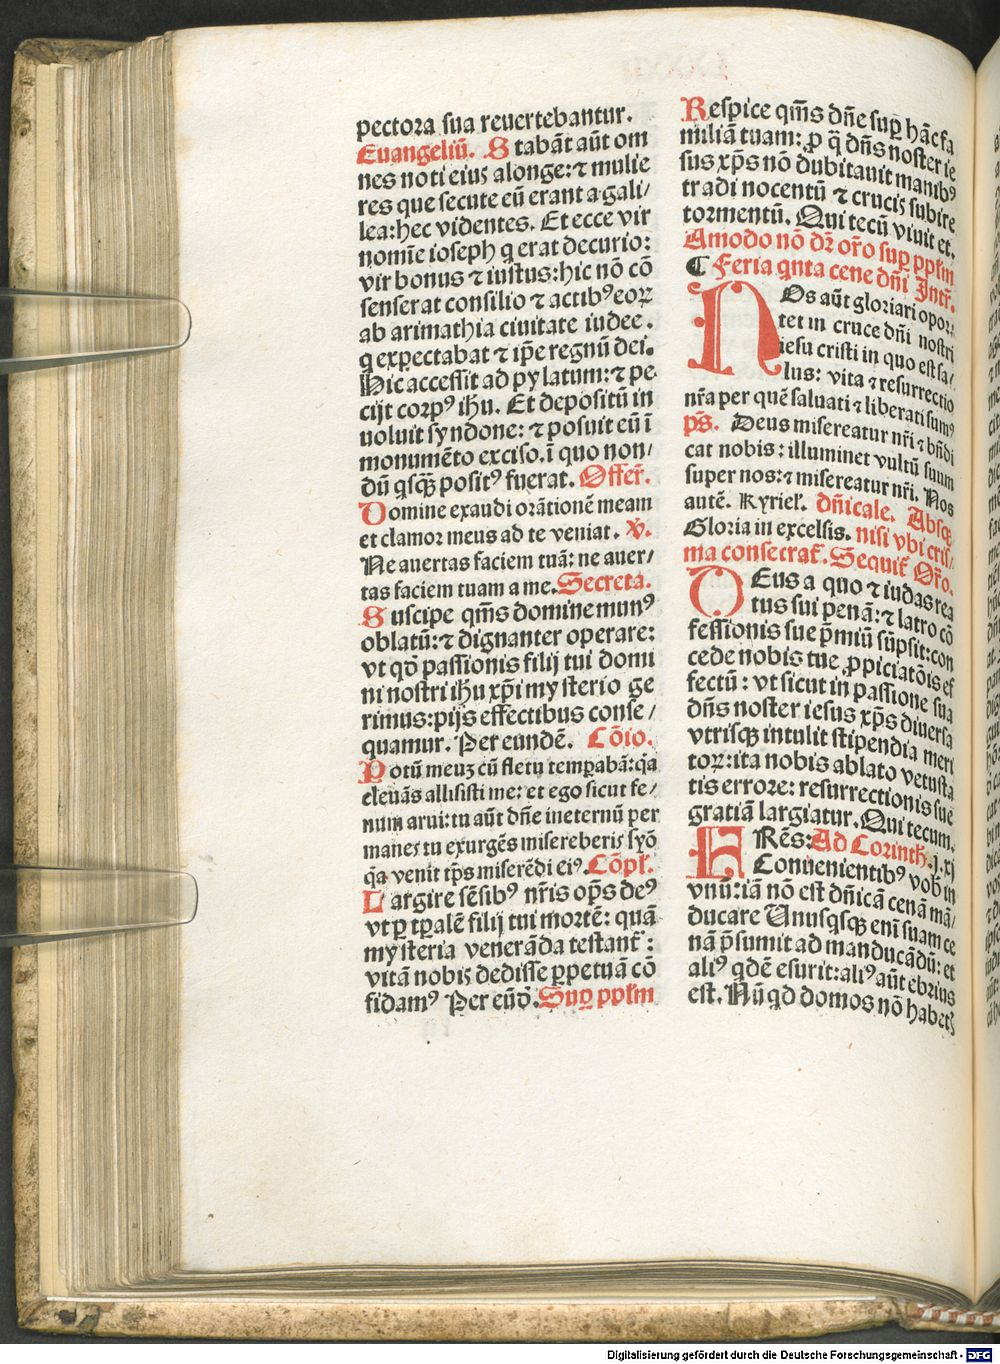 pectora sua reuertebantur.
Euangeliū. Stabāt aūt om
nes noti eius a longe: ⁊ mulie
res que secute eū erant a gali/
lea: hec videntes. Et ecce vir
nomīe ioseph q erat decurio:
vir bonus ⁊ iustus: hic nō cō
senserat consilio ⁊ actibꝰ eoꝝ
ab arimathia ciuitate iudee.
q expectabat ⁊ ip̄e regnū dei.
Hic accessit ad pylatum: ⁊ pe
cijt corpꝰ ihu. Et depositū in
uoluit syndone: ⁊ posuit eū ī
monumēto exciso. ī quo non/
dū qsq̄ȝ positꝰ fuerat. Offer̄.
Domine exaudi orātionē meam
et clamor meus ad te veniat. V̄.
Ne auertas faciem tuā: ne auer/
tas faciem tuam a me. Secreta.
Suscipe qm̄s domine munꝰ
oblatū: ⁊ dignanter operare:
vt qd̄ passionis filij tui domi
ni nostri ihu xp̄i mysterio ge
rimus: pijs effectibus conse/
quamur. Per eundē. Cōio.
Potū meuȝ cū fletu temꝑabā: q̄a
eleuās allisisti me: et ego sicut fe/
num arui: tu aūt dn̄e ineternū per
manes tu exurgēs misereberis syō
q̄a venit tp̄s miserēdi eiꝰ. Cōpl̄.
Largire sēsibꝰ nr̄is op̄s deꝰ
vt ꝑ tꝑalē filij tui mortē: quā
mysteria venerāda testant̄:
vitā nobis dedisse ꝑpetuā cō
fidamꝰ Per eūd̄. Suꝑ pplm̄
Respice qm̄s dn̄e suꝑ hāc fa
miliā tuam: ꝓ q̄ dn̄s noster ie
sus xp̄s nō dubitauit manibꝰ
tradi nocentū ⁊ crucis subire
tormentū. Qui tecū viuit et.
Amodo nō dr̄ or̄o suꝑ pplm̄
¶ Feria qnta cene dn̄i Intr̄.
NOs aūt gloriari opor/
tet in cruce dn̄i nostri
iesu cristi in quo est sa/
lus: vita ⁊ resurrectio
nr̄a per quē saluati ⁊ liberati sumꝰ
ps̄. Deus misereatur nr̄i ⁊ bn̄di
cat nobis: illuminet vultū suum
super nos: ⁊ misereatur nr̄i. Nos
autē. Kyriel̄. dn̄icale. Absq̄ȝ
Gloria in excelsis. nisi vbi cris/
ma consecrat̄. Sequit̄ Or̄o.
DEus a quo ⁊ iudas rea
tus sui penā: ⁊ latro cō
fessionis sue p̄miū sūpsit: con
cede nobis tue ꝓpiciatōis ef
fectū: vt sicut in passione sua
dn̄s noster iesus xp̄s diuersa
vtrisqȝ intulit stipendia meri
toꝝ: ita nobis ablato vetusta
tis errore: resurrectionis sue
gratiā largiatur. Qui tecum.
FRēs: Ad Corinth. j. xj
Conuenientibꝰ vob̄ in
vnū: iā nō est dn̄icā cenā mā/
ducare Vnusqsqȝ enī suam ce
nā p̄sumit ad manducādū: et
aliꝰ qdē esurit: aliꝰ aūt ebrius
est. Nūqd domos nō habetȝ
Digitalisierung gefördert durch die Deutsche Forschungsgemeinschaft - DFG